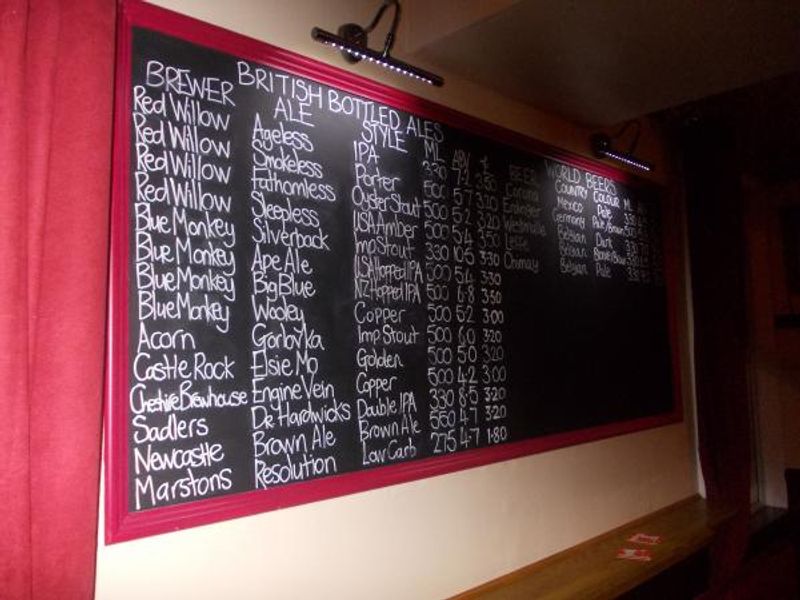 BRITISH BOTTLED ALES
BREWER ALE STYLE ML ABV £
Red Willow Ageless IPA 330 7.2 3.50
Red Willow Smokeless Porter 500 5.7 3.20
Red Willow Fathomless Oyster Stout 500 5.2 3.20
Red Willow Sleepless USA Amber 500 5.4 3.50
Blue Monkey Silverback Imp Stout 330 10.5 3.30
Blue Monkey Ape Ale USA Hopped IPA 500 5.4 3.30
Blue Monkey Big Blue NZ Hopped IPA 500 6.8 3.50
Blue Monkey Wooley Copper 500 5.2 3.00
Acorn Gorlovka Imp Stout 500 6.0 3.20
Castle Rock Elsie Mo Golden 500 5.0 3.20
Cheshire Brewhouse Engine Vein Copper 500 4.2 3.00
Sadlers Dr. Hardwicks Double IPA 330 8.5 3.20
Newcastle Brown Ale Brown Ale 550 4.7 3.20
Marstons Resolution Low Carb 275 4.7 1.80
WORLD BEERS
BEER COUNTRY COLOUR ML
Corona Mexico Pale
Erdinger Germany Pale/Brown
Westmalle Belgian Dark
Leffe Belgian
Chimay Belgian Pale